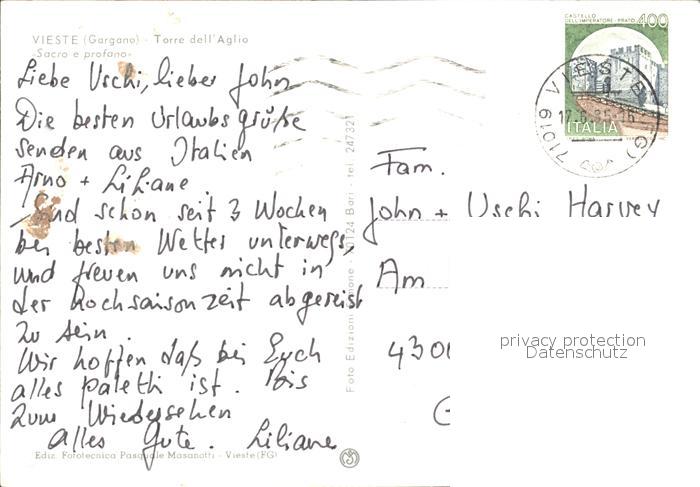 VIESTE (Gargano) - Torre dell'Aglio
"Sacro e profano"
Liebe Uschi, lieber John
Die besten Urlaubsgrüße
senden aus Italien
Arno + Liliane
Sind schon seit 3 Wochen
bei besten Wetter unterwegs,
und freuen uns nicht in
der Hochsaisonzeit abgereist
zu sein.
Wir hoffen daß bei Euch
alles paletti ist. Bis
zum Wiedersehen
alles Gute. Liliane
Ediz. Fototecnica Pasquale Masanotti - Vieste (FG)
Foto Edizioni 70124 Bari - tel. 247321
CASTELLO
DELL'IMPERATORE - PRATO
400
ITALIA
71019 VIESTE (FG)
17.6.85-16
Fam.
John + Uschi Harvey
Am
4300
privacy protection
Datenschutz